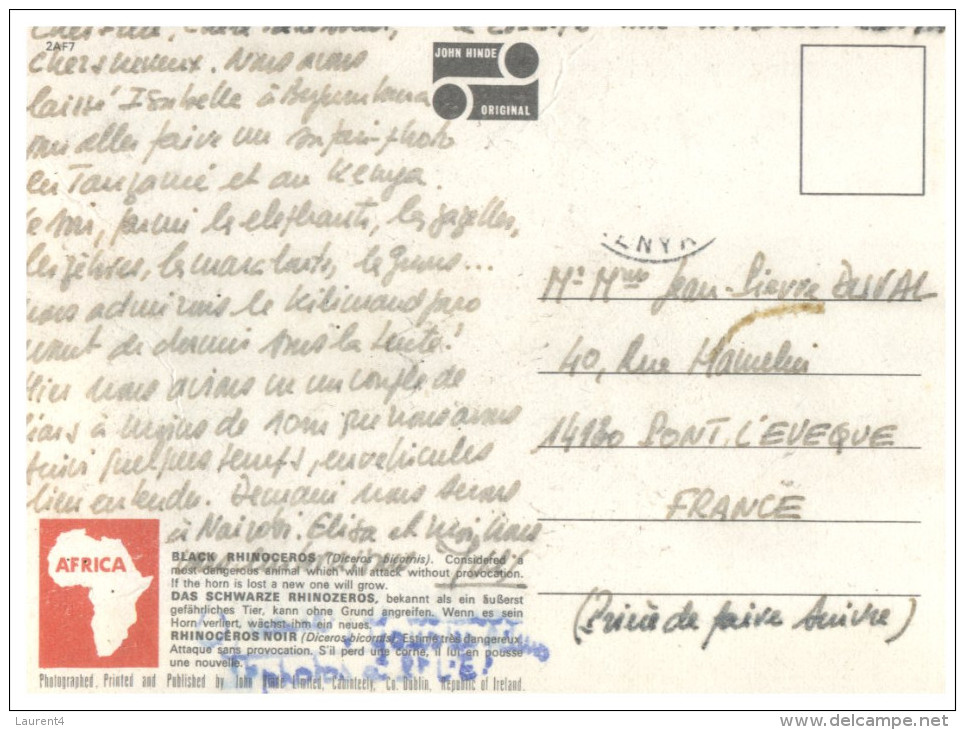 2AF7
chers neveux. Nous avons
laissé Isabelle à Bujumbura
aller faire un safari-photo
en Tanzanie et au Kenya.
parmi les elephants, les gazelles,
les zèbres, les marabouts, les gnous...
nous admirons le Kilimandjaro
avant de dormir sous la tente!
Hier nous avions vu un couple de
lions à moins de 10m que nous avons
suivi quelques temps, en vehicules
bien entendu. Demain nous serons
à Nairobi. Elisa et moi
JOHN HINDE
ORIGINAL
ENY
Mr Mme Jean-Pierre DUVAL
40, Rue Hamelin
14130 PONT L'EVEQUE
FRANCE
(Prière de faire suivre)
AFRICA
BLACK RHINOCEROS (Diceros bicornis). Considered a
most dangerous animal which will attack without provocation.
If the horn is lost a new one will grow.
DAS SCHWARZE RHINOZEROS, bekannt als ein äußerst
gefährliches Tier, kann ohne Grund angreifen. Wenn es sein
Horn verliert, wächst ihm ein neues.
RHINOCÉROS NOIR (Diceros bicornis). Estimé très dangereux.
Attaque sans provocation. S'il perd une corne, il lui en pousse
une nouvelle.
Photographed, Printed and Published by John Hinde Limited, Cabinteely, Co. Dublin, Republic of Ireland.
Laurent4
www.delcampe.net